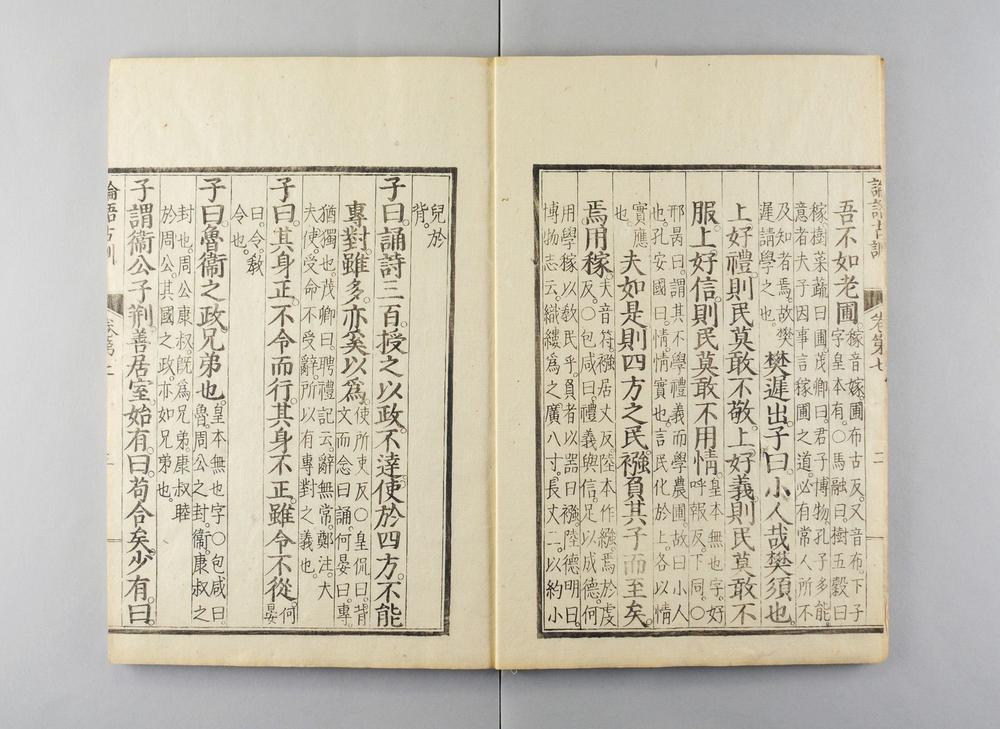 論語古訓
卷第七
二
吾不如老圃。
稼音嫁。圃布古反。又音布。下子
字皇本有。○馬融曰。樹五穀曰
稼。樹菜蔬曰圃。茂卿曰。君子博物。孔子多能。
意者夫子因事言稼圃之道。必有常人所不
及知者焉。故樊
遲請學之也。
樊遲出。子曰。小人哉樊須也。
上好禮。則民莫敢不敬。上好義。則民莫敢不
服。上好信。則民莫敢不用情。
皇本無也字。好
呼報反。下同。○
邢昺曰。謂其不學禮義而學農圃。故曰小人
也。孔安國曰。情情實也。言民化於上。各以情
實應
也。
夫如是則四方之民。襁負其子而至矣。
焉用稼。
夫音符。襁居丈反。陸本作繈。焉於虔
反。○包咸曰。禮義與信。足以成德。何
用學稼以敎民乎。負者以器曰襁。陸德明曰。
博物志云。織縷爲之。廣八寸。長丈二。以約小
兒於
背。
子曰。誦詩三百。授之以政。不達。使於四方。不能
專對。雖多。亦奚以爲。
使所吏反。○皇侃曰。背
文而念曰誦。何晏曰。專
猶獨也。茂卿曰。聘禮記云。辭無常。鄭註。大
夫使。受命不受辭。所以有專對之義也。
子曰。其身正。不令而行。其身不正。雖令不從。
何
晏
曰。令。敎
令也。
子曰。魯衞之政。兄弟也。
皇本無也字。○包咸曰。
魯。周公之封。衞。康叔之
封也。周公康叔。旣爲兄弟。康叔睦
於周公。其國之政。亦如兄弟也。
子謂衞公子荆。善居室始有。曰。苟合矣。少有。曰。
論語古訓